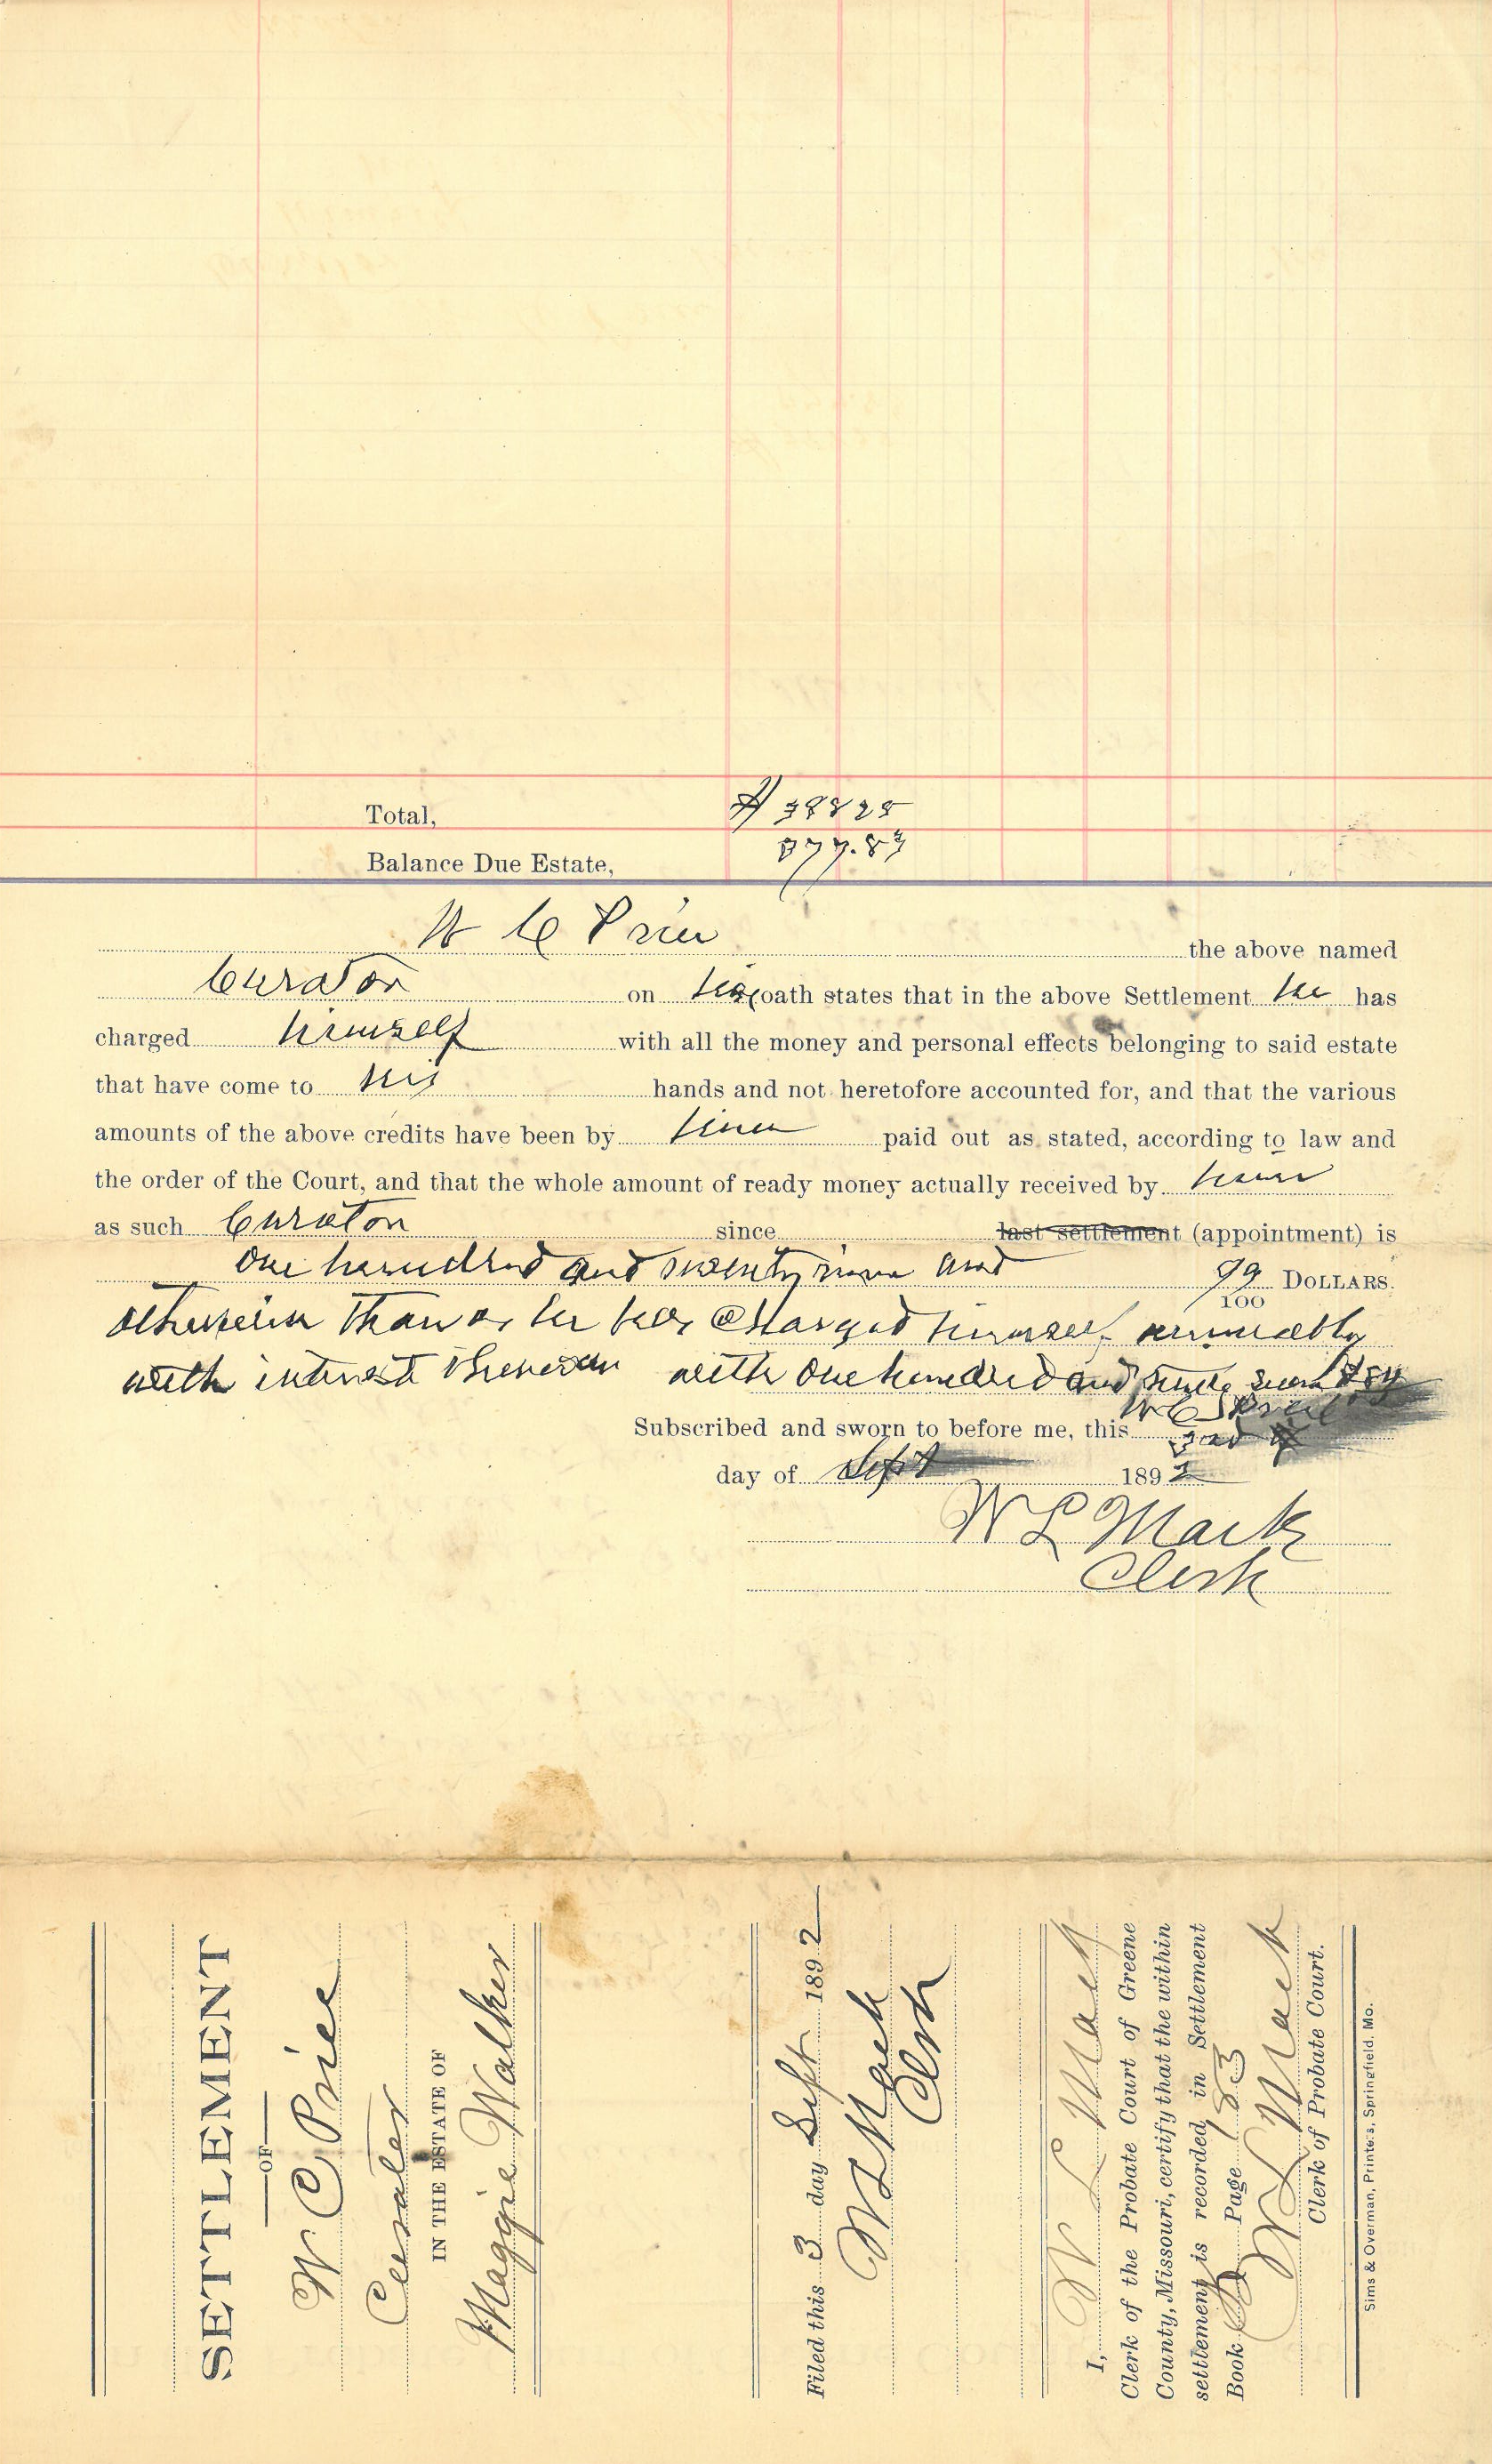 Total, $ 388 25
Balance Due Estate, 877.83
W C Price the above named
Curator on his oath states that in the above Settlement he has
charged himself with all the money and personal effects belonging to said estate
that have come to his hands and not heretofore accounted for, and that the various
amounts of the above credits have been by him paid out as stated, according to law and
the order of the Court, and that the whole amount of ready money actually received by him
as such Curator since last settlement (appointment) is
One hundred and seventy nine and 99/100 DOLLARS.
otherwise than as he has charged himself annually
with interest thereon with One hundred and
W C Price
Subscribed and sworn to before me, this 3rd
day of Sept 1892
W L Mack
Clerk
SETTLEMENT
OF
W C Price
Curator
IN THE ESTATE OF
Maggie Walker
Filed this 3 day Sept 1892
W L Mack
Clerk
I, W L Mack
Clerk of the Probate Court of Greene
County, Missouri, certify that the within
settlement is recorded in Settlement
Book Page 183
W L Mack
Clerk of Probate Court.
Sims & Overman, Printers, Springfield, Mo.